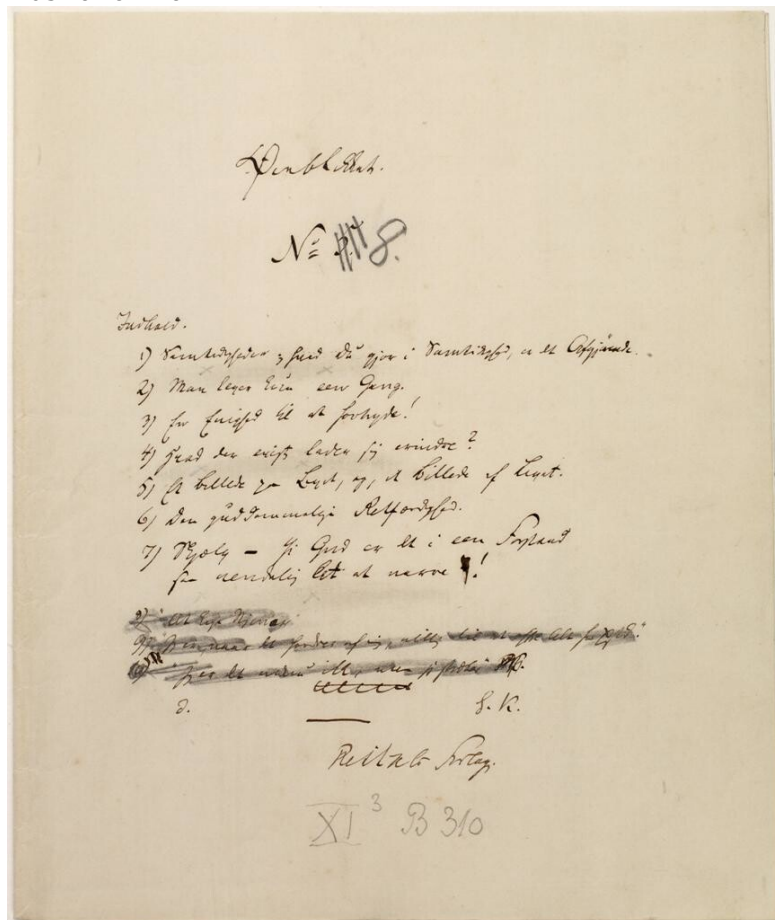 Øieblikket.
No 8.
Indhold.
1) Samtidigheden; hvad Du gjør i Samtidighed, er det Afgjørende.
2) Man lever kun een Gang.
3) En Evighed til at fortryde!
4) Hvad der evigt lader sig erindre?
5) Et Billede paa Livet, og, et Billede af Livet.
6) Den guddommelige Retfærdighed.
7) Skjælv – thi Gud er det i een Forstand
saa uendelig let at narre!
d. S. K.
Reitzels Forlag.
XI 3 B 310